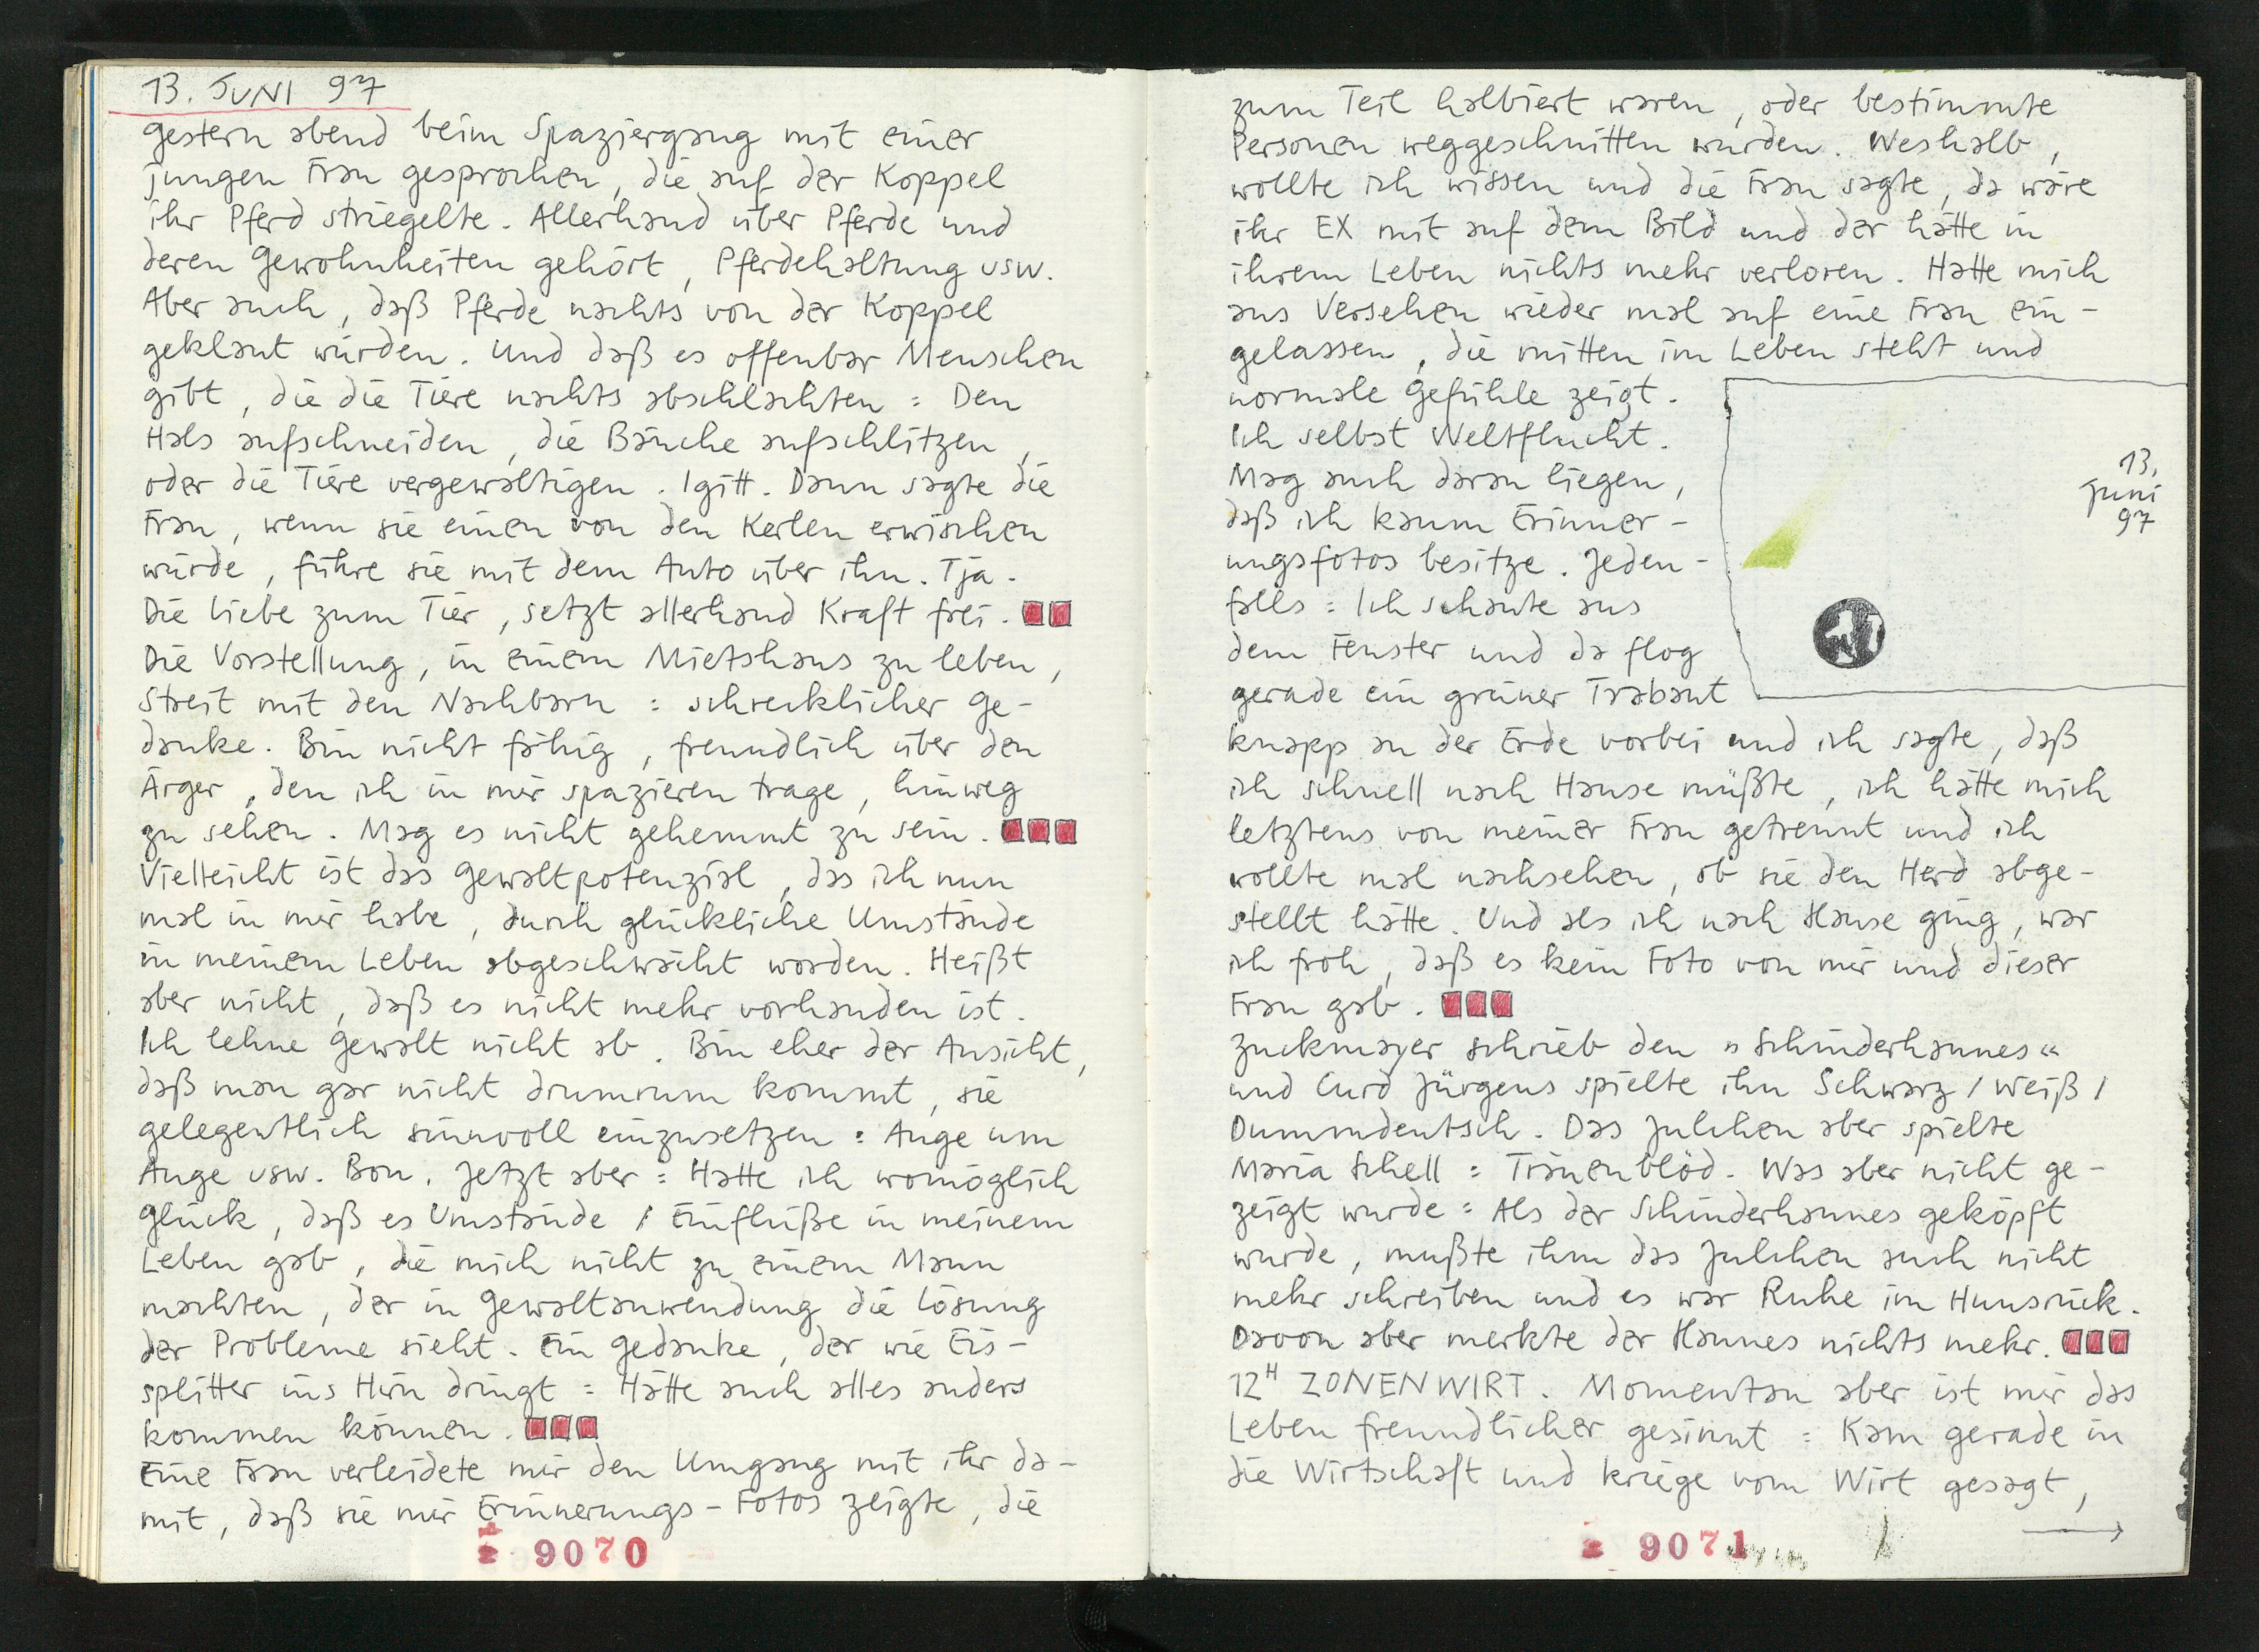 13. JUNI 97
gestern abend beim Spaziergang mit einer
jungen Frau gesprochen, die auf der Koppel
ihr Pferd striegelte. Allerhand über Pferde und
deren Gewohnheiten gehört, Pferdehaltung usw.
Aber auch, daß Pferde nachts von der Koppel
geklaut würden. Und daß es offenbar Menschen
gibt, die die Tiere nachts abschlachten: Den
Hals aufschneiden, die Bäuche aufschlitzen,
oder die Tiere vergewaltigen. Igitt. Dann sagte die
Frau, wenn sie einen von den Kerlen erwischen
würde, führe sie mit dem Auto über ihn. Tja.
Die Liebe zum Tier, setzt allerhand Kraft frei.
Die Vorstellung, in einem Mietshaus zu leben,
Streit mit den Nachbarn: schrecklicher Ge-
danke. Bin nicht fähig, freundlich über den
Ärger, den ich in mir spazieren trage, hinweg
zu sehen. Mag es nicht gehemmt zu sein.
Vielleicht ist das Gewaltpotenzial, das ich nun
mal in mir habe, durch glückliche Umstände
in meinem Leben abgeschwächt worden. Heißt
aber nicht, daß es nicht mehr vorhanden ist.
Ich lehne Gewalt nicht ab. Bin eher der Ansicht,
daß man gar nicht drumrum kommt, sie
gelegentlich sinnvoll einzusetzen: Auge um
Auge usw. Bon. Jetzt aber: Hatte ich womöglich
Glück, daß es Umstände / Einflüße in meinem
Leben gab, die mich nicht zu einem Mann
machten, der in Gewaltanwendung die Lösung
der Probleme sieht. Ein Gedanke, der wie Eis-
splitter ins Hirn dringt: Hätte auch alles anders
kommen können.
Eine Frau verleidete mir den Umgang mit ihr da-
mit, daß sie mir Erinnerungs-Fotos zeigte, die
9070
zum Teil halbiert waren, oder bestimmte
Personen weggeschnitten wurden. Weshalb,
wollte ich wissen und die Frau sagte, da wäre
ihr EX mit auf dem Bild und der hätte in
ihrem Leben nichts mehr verloren. Hatte mich
aus Versehen wieder mal auf eine Frau ein-
gelassen, die mitten im Leben steht und
normale Gefühle zeigt.
Ich selbst Weltflucht.
Mag auch daran liegen,
daß ich kaum Erinner-
ungsfotos besitze. Jeden-
falls: Ich schaute aus
dem Fenster und da flog
gerade ein grüner Trabant
knapp an der Erde vorbei und ich sagte, daß
ich schnell nach Hause müßte, ich hätte mich
letztens von meiner Frau getrennt und ich
wollte mal nachsehen, ob sie den Herd abge-
stellt hätte. Und als ich nach Hause ging, war
ich froh, daß es kein Foto von mir und dieser
Frau gab.
Zuckmayer schrieb den »Schinderhannes«
und Curd Jürgens spielte ihn Schwarz / Weiß /
Dummdeutsch. Das Julchen aber spielte
Maria Schell: Tränenblöd. Was aber nicht ge-
zeigt wurde: Als der Schinderhannes geköpft
wurde, mußte ihm das Julchen auch nicht
mehr schreiben und es war Ruhe im Hunsrück.
Davon aber merkte der Hannes nichts mehr.
12H ZONENWIRT. Momentan aber ist mir das
Leben freundlicher gesinnt: Kam gerade in
die Wirtschaft und kriege vom Wirt gesagt,
13.
Juni
97
9071